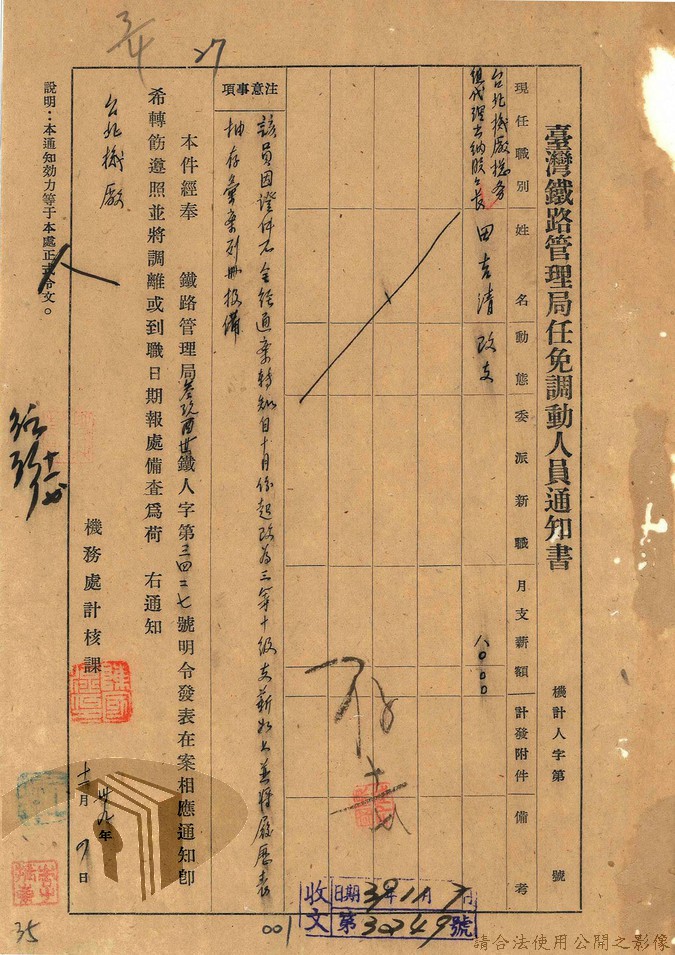 臺灣鐵路管理局任免調動人員通知書
機計人字第 號
現任職別 姓名 動態 委派新職 月支薪額 計發附件 備考
台北機廠總務
組代理出納股股長 田吉清 改支 八〇.〇〇
注意事項
該員因證件不全經通案轉知自十月份起改為三等十級支薪如上並將履歷表
抽存彙案列冊報備
本件經奉 鐵路管理局叁玖酉世鐵人字第三四二七號明令發表在案相應通知卽
希轉飭遵照並將調離或到職日期報處備查爲荷 右通知
台北機廠
機務處計核課
卅九年十一月 日
說明：本通知効力等于本處正式令文。
收文 日期 39年11月7日
第3249號
001
35
27
請合法使用公開之影像